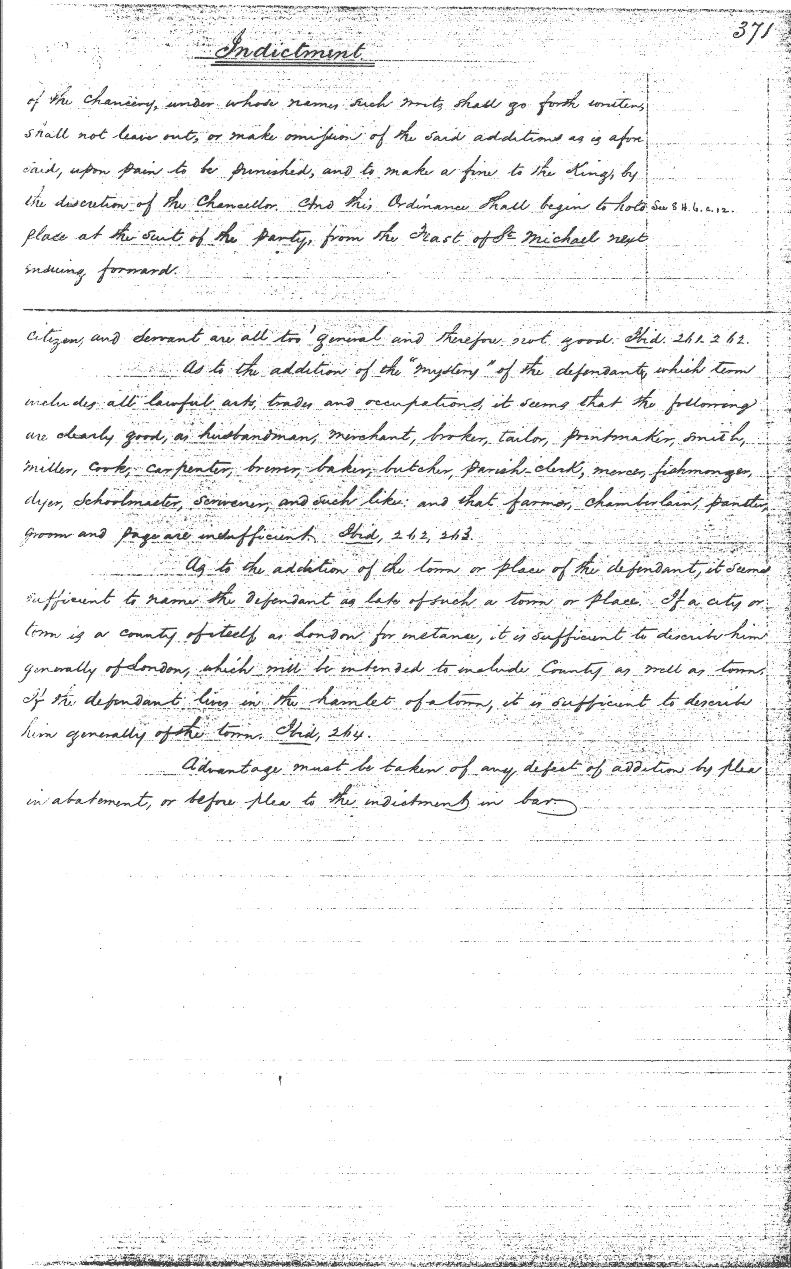 371
Indictment.
of the Chancery, under whose names such writs shall go forth written,
shall not leave out, or make omission of the said additions as is afore
said, upon pain to be punished, and to make a fine to the King, by
the discretion of the Chancellor. And this Ordinance shall begin to hold See 8 H. 6. c. 12.
place at the suit of the party, from the Feast of St Michael next
ensuing forward.
Citizen, and Servant are all too general and therefore not good. Ibid. 261. 262.
As to the addition of the "mystery" of the defendant, which term
includes all lawful arts, trades and occupations, it seems that the following
are clearly good, as husbandman, merchant, broker, tailor, printmaker, smith,
miller, Cook, carpenter, brewer, baker, butcher, parish-clerk, mercer, fishmonger,
dyer, schoolmaster, scrivener, and such like: and that farmer, chamberlain, panter,
groom and page are insufficient. Ibid, 262, 263.
As to the addition of the town or place of the defendant, it seems
sufficient to name the defendant as late of such a town or place. If a city or
town is a county of itself as London for instance, it is sufficient to describe him
generally of London, which will be intended to include County as well as town.
If the defendant lives in the hamlet of a town, it is sufficient to describe
him generally of the town. Ibid, 264.
Advantage must be taken of any defect of addition by plea
in abatement, or before plea to the indictment in bar.